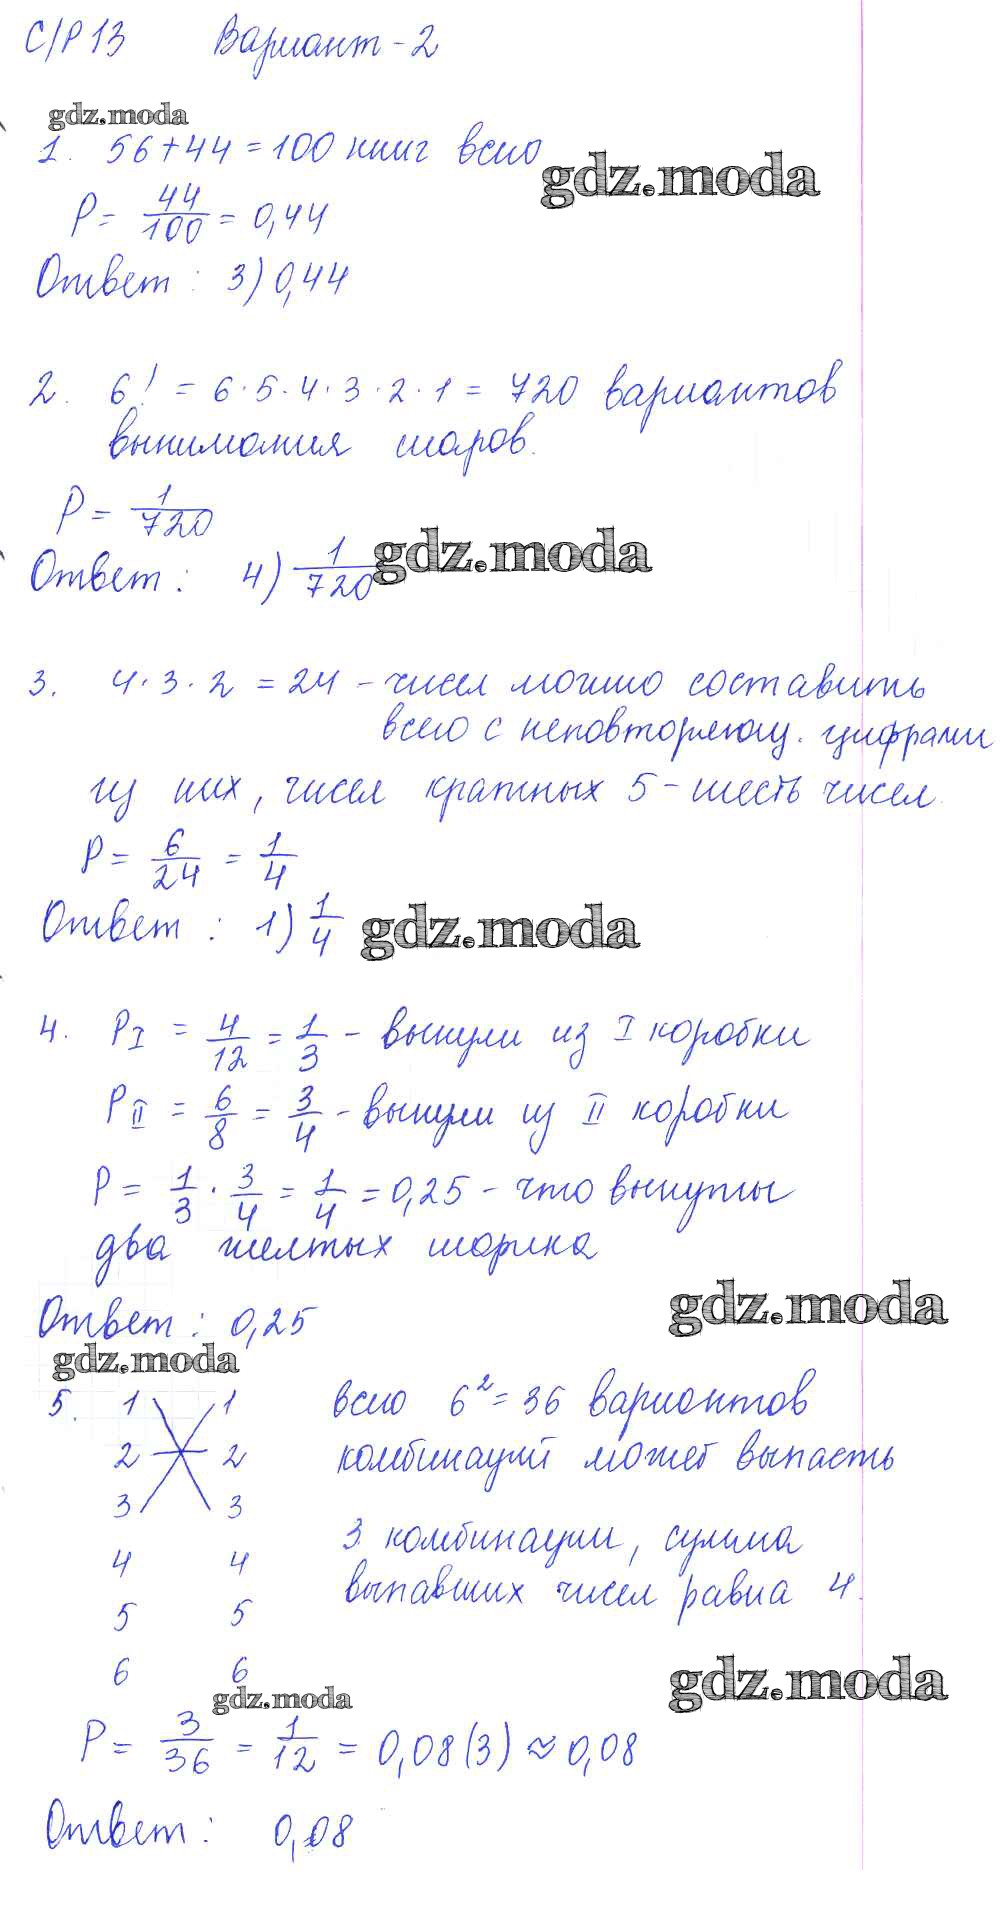 С/Р 13 Вариант - 2
gdz.moda
1. 56 + 44 = 100 книг всего
gdz.moda
P = 44/100 = 0,44
Ответ : 3) 0,44
2. 6! = 6 · 5 · 4 · 3 · 2 · 1 = 720 вариантов
вынимания шаров.
P = 1/720
Ответ : 4) 1/720
gdz.moda
3. 4 · 3 · 2 = 24 - чисел можно составить
всего с неповторяющ. цифрами
из них, чисел кратных 5 - шесть чисел.
P = 6/24 = 1/4
Ответ : 1) 1/4
gdz.moda
4. P I = 4/12 = 1/3 - вынули из I коробки
P II = 6/8 = 3/4 - вынули из II коробки
P = 1/3 · 3/4 = 1/4 = 0,25 - что вынуты
два желтых шарика
gdz.moda
Ответ : 0,25
gdz.moda
5. 1 1 всего 6² = 36 вариантов
2 2 комбинаций может выпасть
3 3
3 комбинации, сумма
4 4
выпавших чисел равна 4.
5 5
6 6
gdz.moda
gdz.moda
P = 3/36 = 1/12 = 0,08(3) ≈ 0,08
Ответ : 0,08